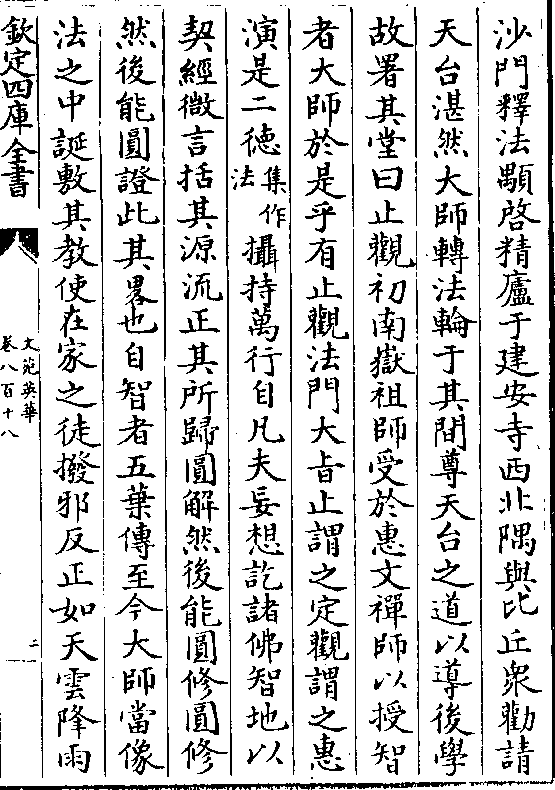 沙門釋法顒啓精廬于建安寺西北隅與比丘衆勸請
天台湛然大師轉法輪于其間尊天台之道以導後學
故署其堂曰止觀初南嶽祖師受於惠文禪師以授智
者大師於是乎有止觀法門大旨止謂之定觀謂之惠
演是二德集作法攝持萬行自凡夫妄想訖諸佛智地以
契經微言括其源流正其所歸圓解然後能圓修圓修
然後能圓證此其畧也自智者五葉傳至今大師當像
法之中誕敷其教使在家之徒撥邪反正如天雲降雨
欽定四庫全書
文苑英華
卷八百十八
二